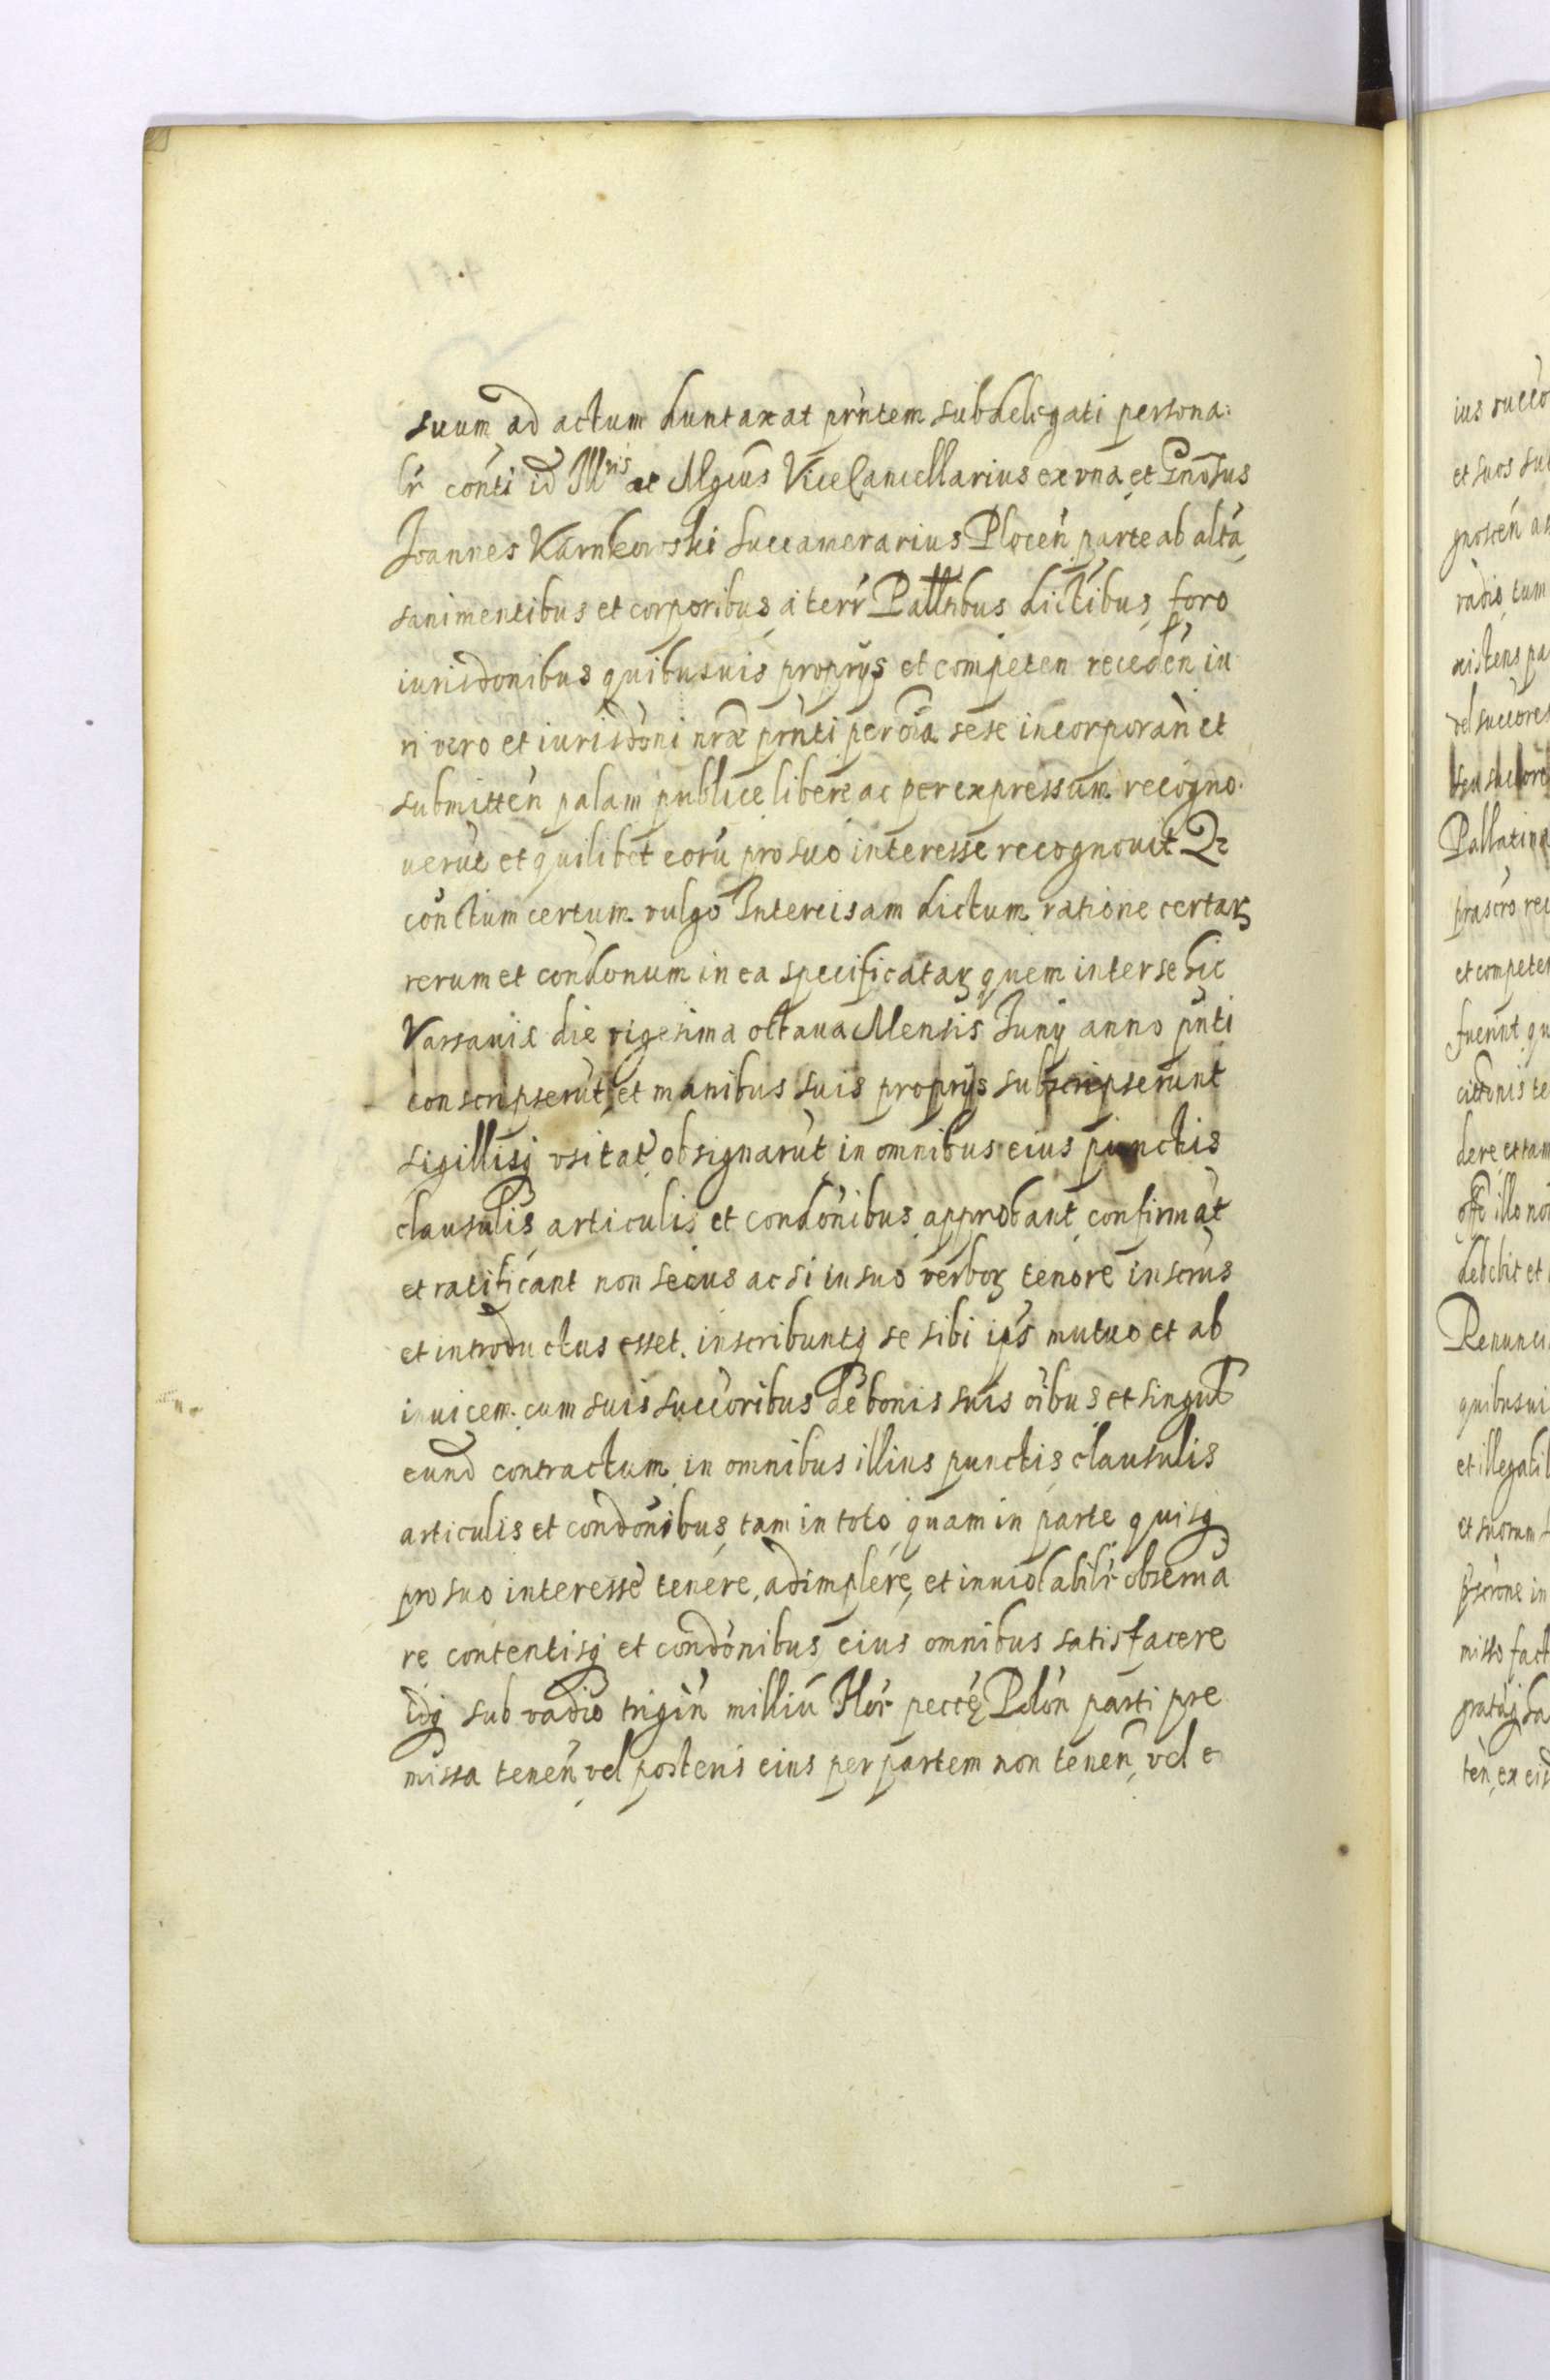 suum ad actum duntaxat prńtem subdelegati persona:
lr̃ conti id Ill͞ris ac Mgcus ViceCancellarius ex vna et Gnosus
Joannes Karnkowski Succamerarius Plocen̄ parte ab altā
sani mentibus et corporibus a terr̄ Pallibus dictibus foro
iurisdonibus quibusuis proprijs et competen receden iu
ri vero et iurisdoni nræ prnti per oīa sese incorporan̄ et
submitten̄ palam publice libere ac per expressum recogno:
uerūt et quilibet eorū pro suo interesse recognouit Qz
contractum certum vulgo Intercisam dictum ratione certaꝝ
rerum et condonum in ea specificataꝝ quem inter se hic
Varsauiæ die vigesima octaua Mensis Junij anno pn̄ti
conscripserūt et manibus suis proprijs subscripserunt
sigillisq vsitat obsignarūt in omnibus eius punctis
clausulis articulis et condonibus approbant confirmāt
et ratificant non secus ac si in suo verboꝝ tenore inscrus
et introductus esset. inscribuntq se sibi ip̄s mutuo et ab
inuicem cum suis succoribus de bonis suis oibus et singul
eund contractum in omnibus illius punctis clausulis
articulis et condonibus tam in toto quam in parte quisq
pro suo interesse tenere, adimplere, et inuiolabilr̄ obserua
re contentisq et condonibus eius omnibus satisfacere
Idq sub vadio trigin̄ milliū Flor peccę Polon parti pre
missa tenen̄ vel posteris eius per partem non tenen̄ vel e
ius succo
et suos
gnoscen
vadio, tum
xistens pa
vel succores
seu succores
Pallatina
præscro rec
et competen
fuerint qu
citonis te
dere, et tam
offic illo non
debebit et
Renuncia
quibusui
et illegatil
et suorum
in
misso fact

ten, ex eisd